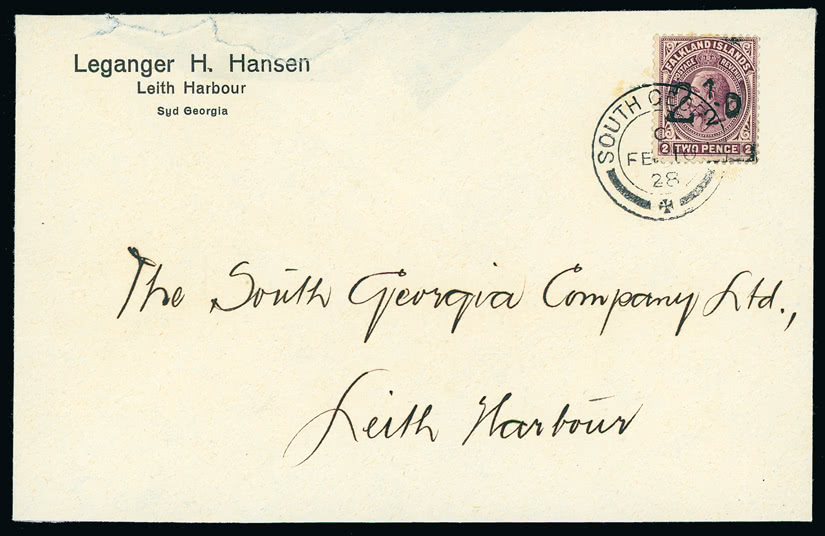 Leganger H. Hansen
Leith Harbour
Syd Georgia
FALKLAND ISLANDS
POSTAGE REVENUE
2 D
2 TWO PENCE 2
SOUTH
FE
28
The South Georgia Company Ltd.,
Leith Harbour